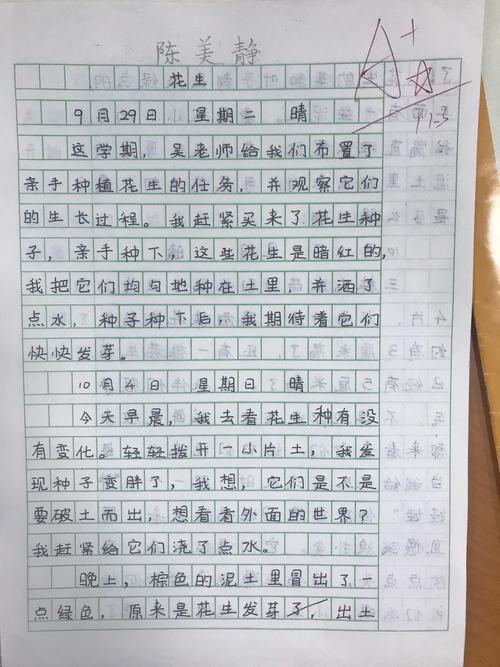 陈美静
A+
花生
9月29日 星期二 晴
这学期，吴老师给我们布置了
亲手种植花生的任务，并观察它们
的生长过程。我赶紧买来了花生种
子，亲手种下，这些花生是暗红的，
我把它们均匀地种在土里，并洒了
点水，种子种下后，我期待着它们
快快发芽。
10月4日 星期日 晴
今天早晨，我去看花生种有没
有变化。轻轻拨开一小片土，我发
现种子变胖了，我想，它们是不是
要破土而出，想看看外面的世界？
我赶紧给它们浇了点水。
晚上，棕色的泥土里冒出了一
点绿色，原来是花生发芽了，出土